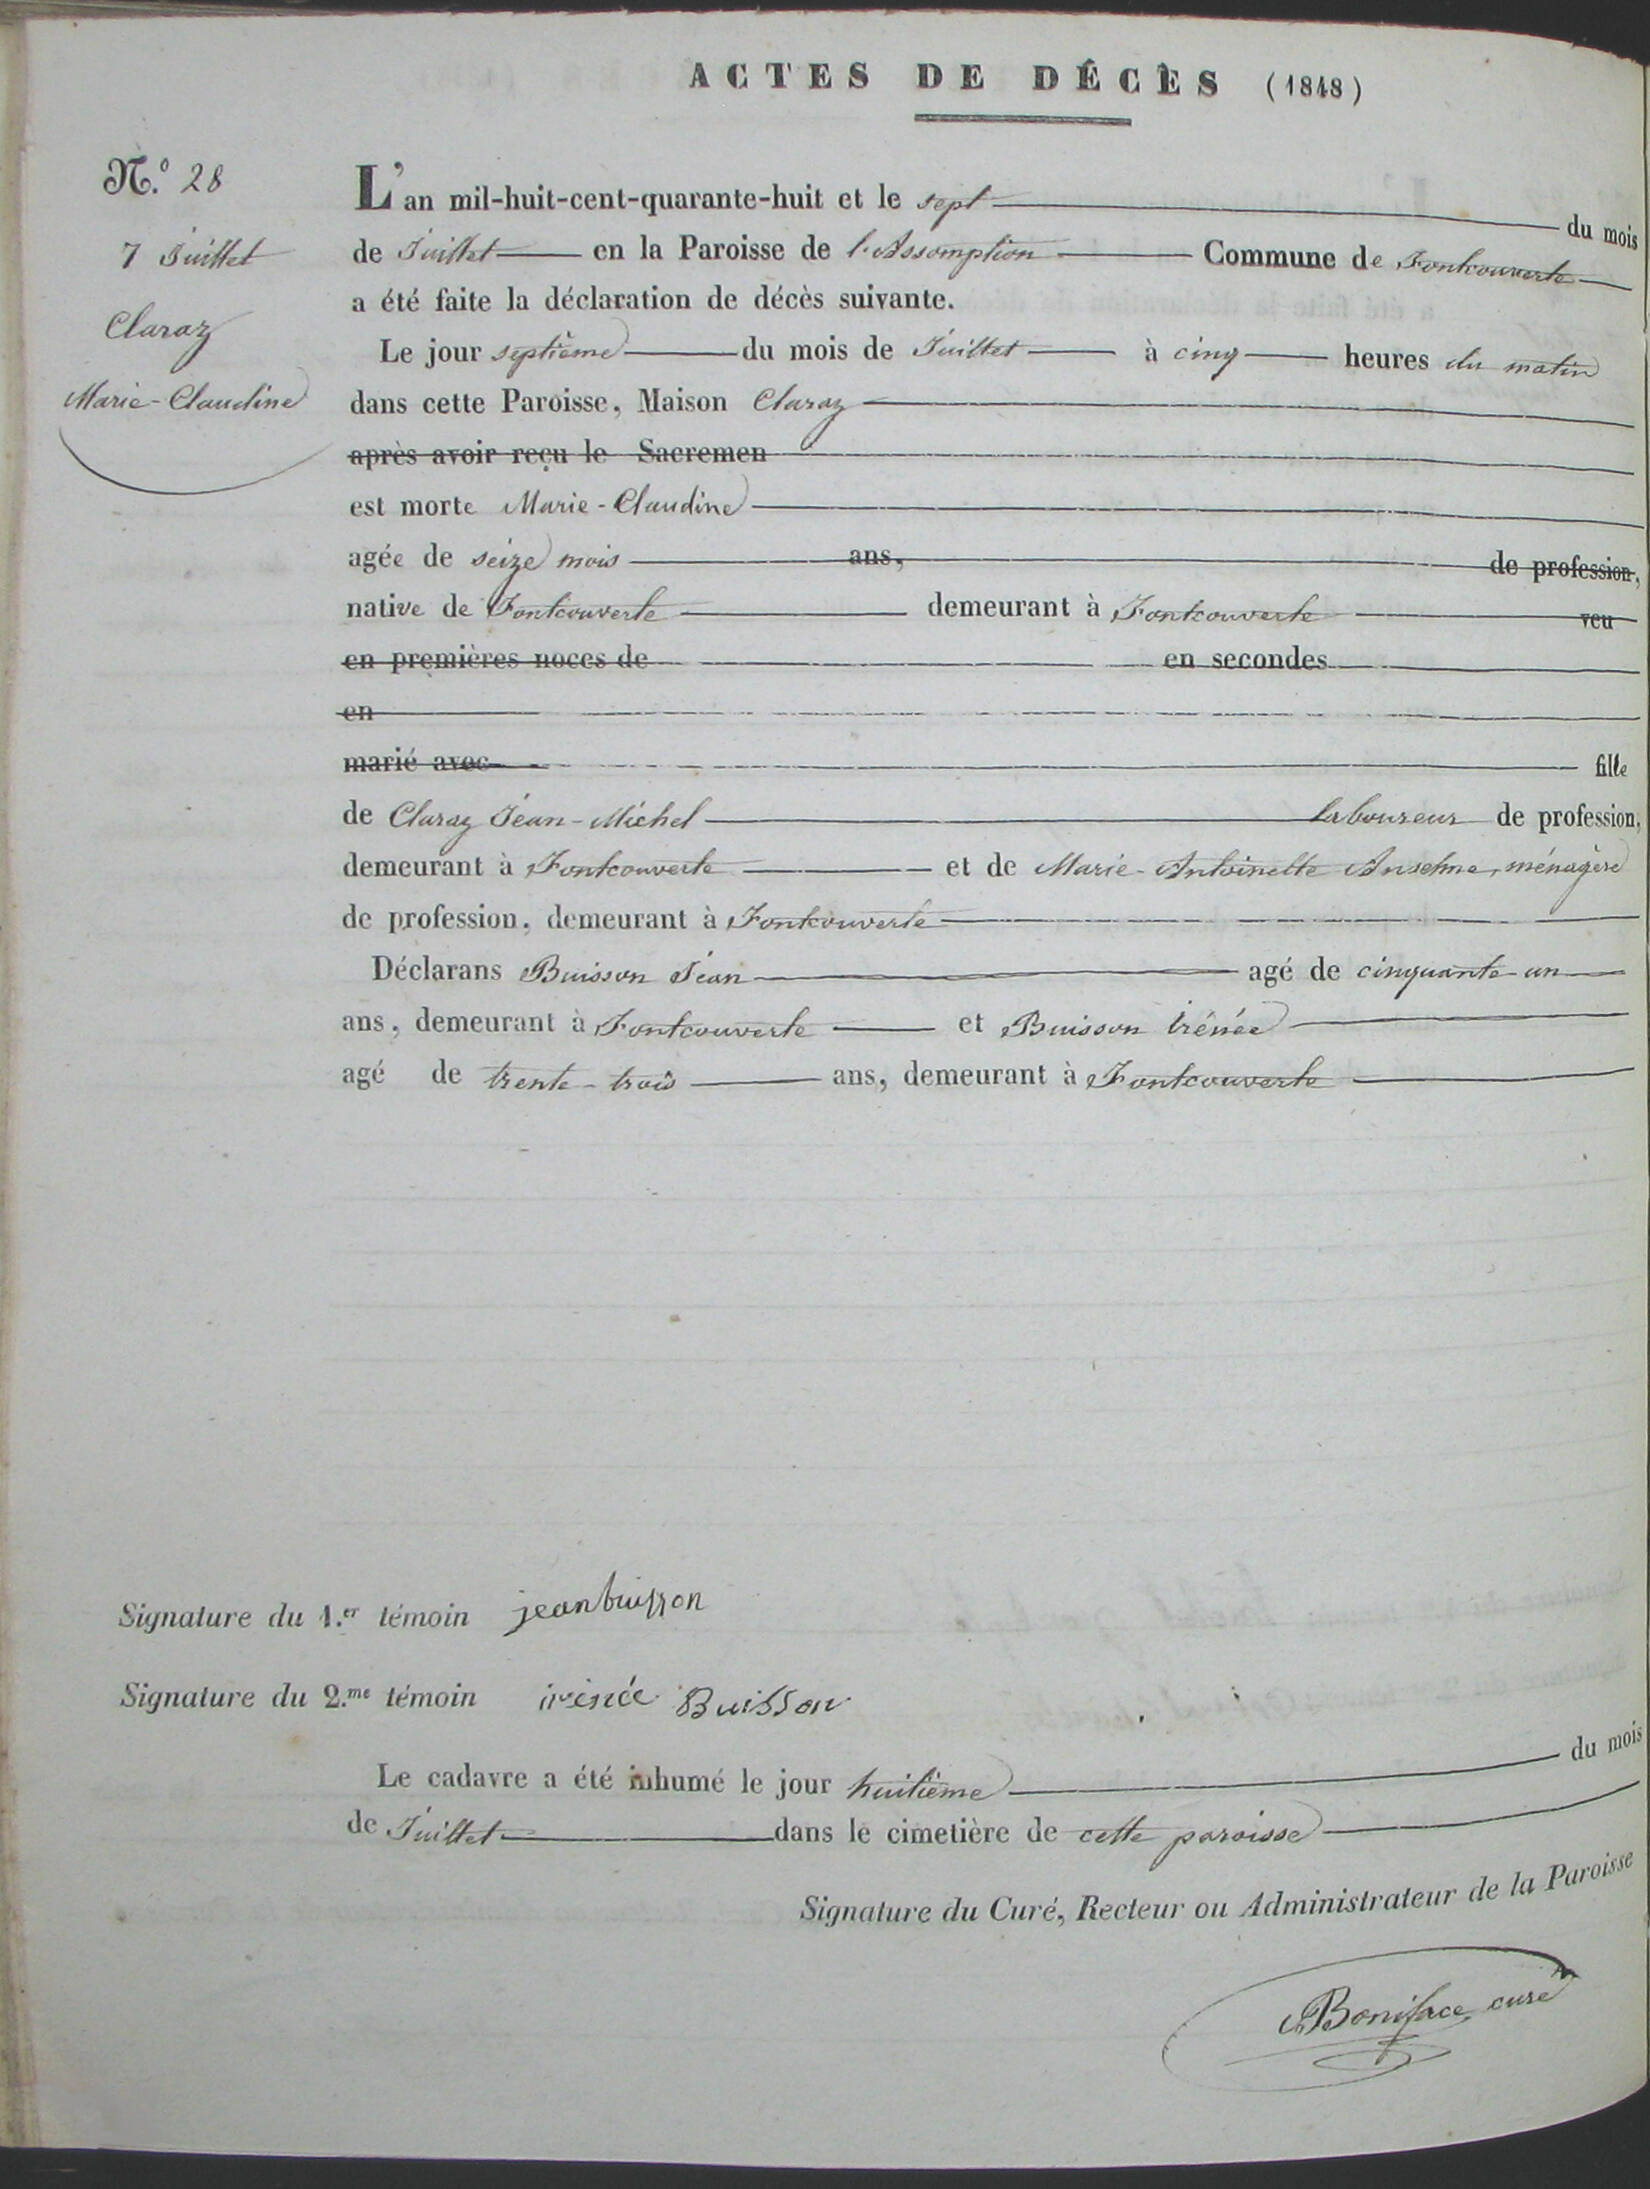 ACTES DE DÉCÈS (1848)
N.º 28
7 Juillet
Claraz
Marie-Claudine
L'an mil-huit-cent-quarante-huit et le sept du mois
de Juillet en la Paroisse de l'Assomption Commune de Fontcouverte
a été faite la déclaration de décès suivante.
Le jour septième du mois de Juillet à cinq heures du matin
dans cette Paroisse, Maison Claraz
après avoir reçu le Sacremen
est morte Marie-Claudine
agée de seize mois ans, de profession,
native de Fontcouverte demeurant à Fontcouverte veu
en premières noces de en secondes
en
marié avec fille
de Claraz Jean-Michel laboureur de profession,
demeurant à Fontcouverte et de Marie-Antoinette Anselme, ménagère
de profession, demeurant à Fontcouverte
Déclarans Buisson Jean agé de cinquante-un
ans, demeurant à Fontcouverte et Buisson Irénée
agé de trente-trois ans, demeurant à Fontcouverte
Signature du 1.er témoin jean buisson
Signature du 2.me témoin irénée Buisson
Le cadavre a été inhumé le jour huitième du mois
de Juillet dans le cimetière de cette paroisse
Signature du Curé, Recteur ou Administrateur de la Paroisse
Boniface, curé